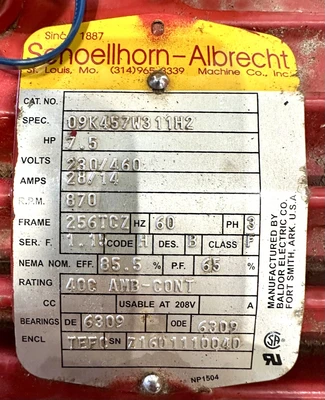 Since 1887
Schoellhorn-Albrecht
St. Louis, Mo. (314)965-3339 Machine Co., Inc.
CAT. NO.
SPEC. 09K457W311H2
HP 7.5
VOLTS 230/460
AMPS 28/14
R.P.M. 870
FRAME 256TCZ HZ 60 PH 3
SER. F. 1.15 CODE H DES. B CLASS F
NEMA NOM. EFF. 85.5 % P.F. 65 %
RATING 40C AMB-CONT
CC USABLE AT 208V A
BEARINGS DE 6309 ODE 6309
ENCL TEFC SN Z1601110040
NP1504
MANUFACTURED BY
BALDOR ELECTRIC CO.
FORT SMITH, ARK. U.S.A.